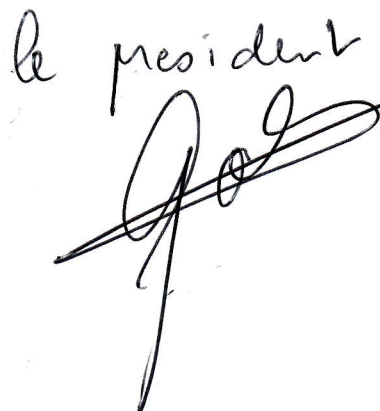 le president